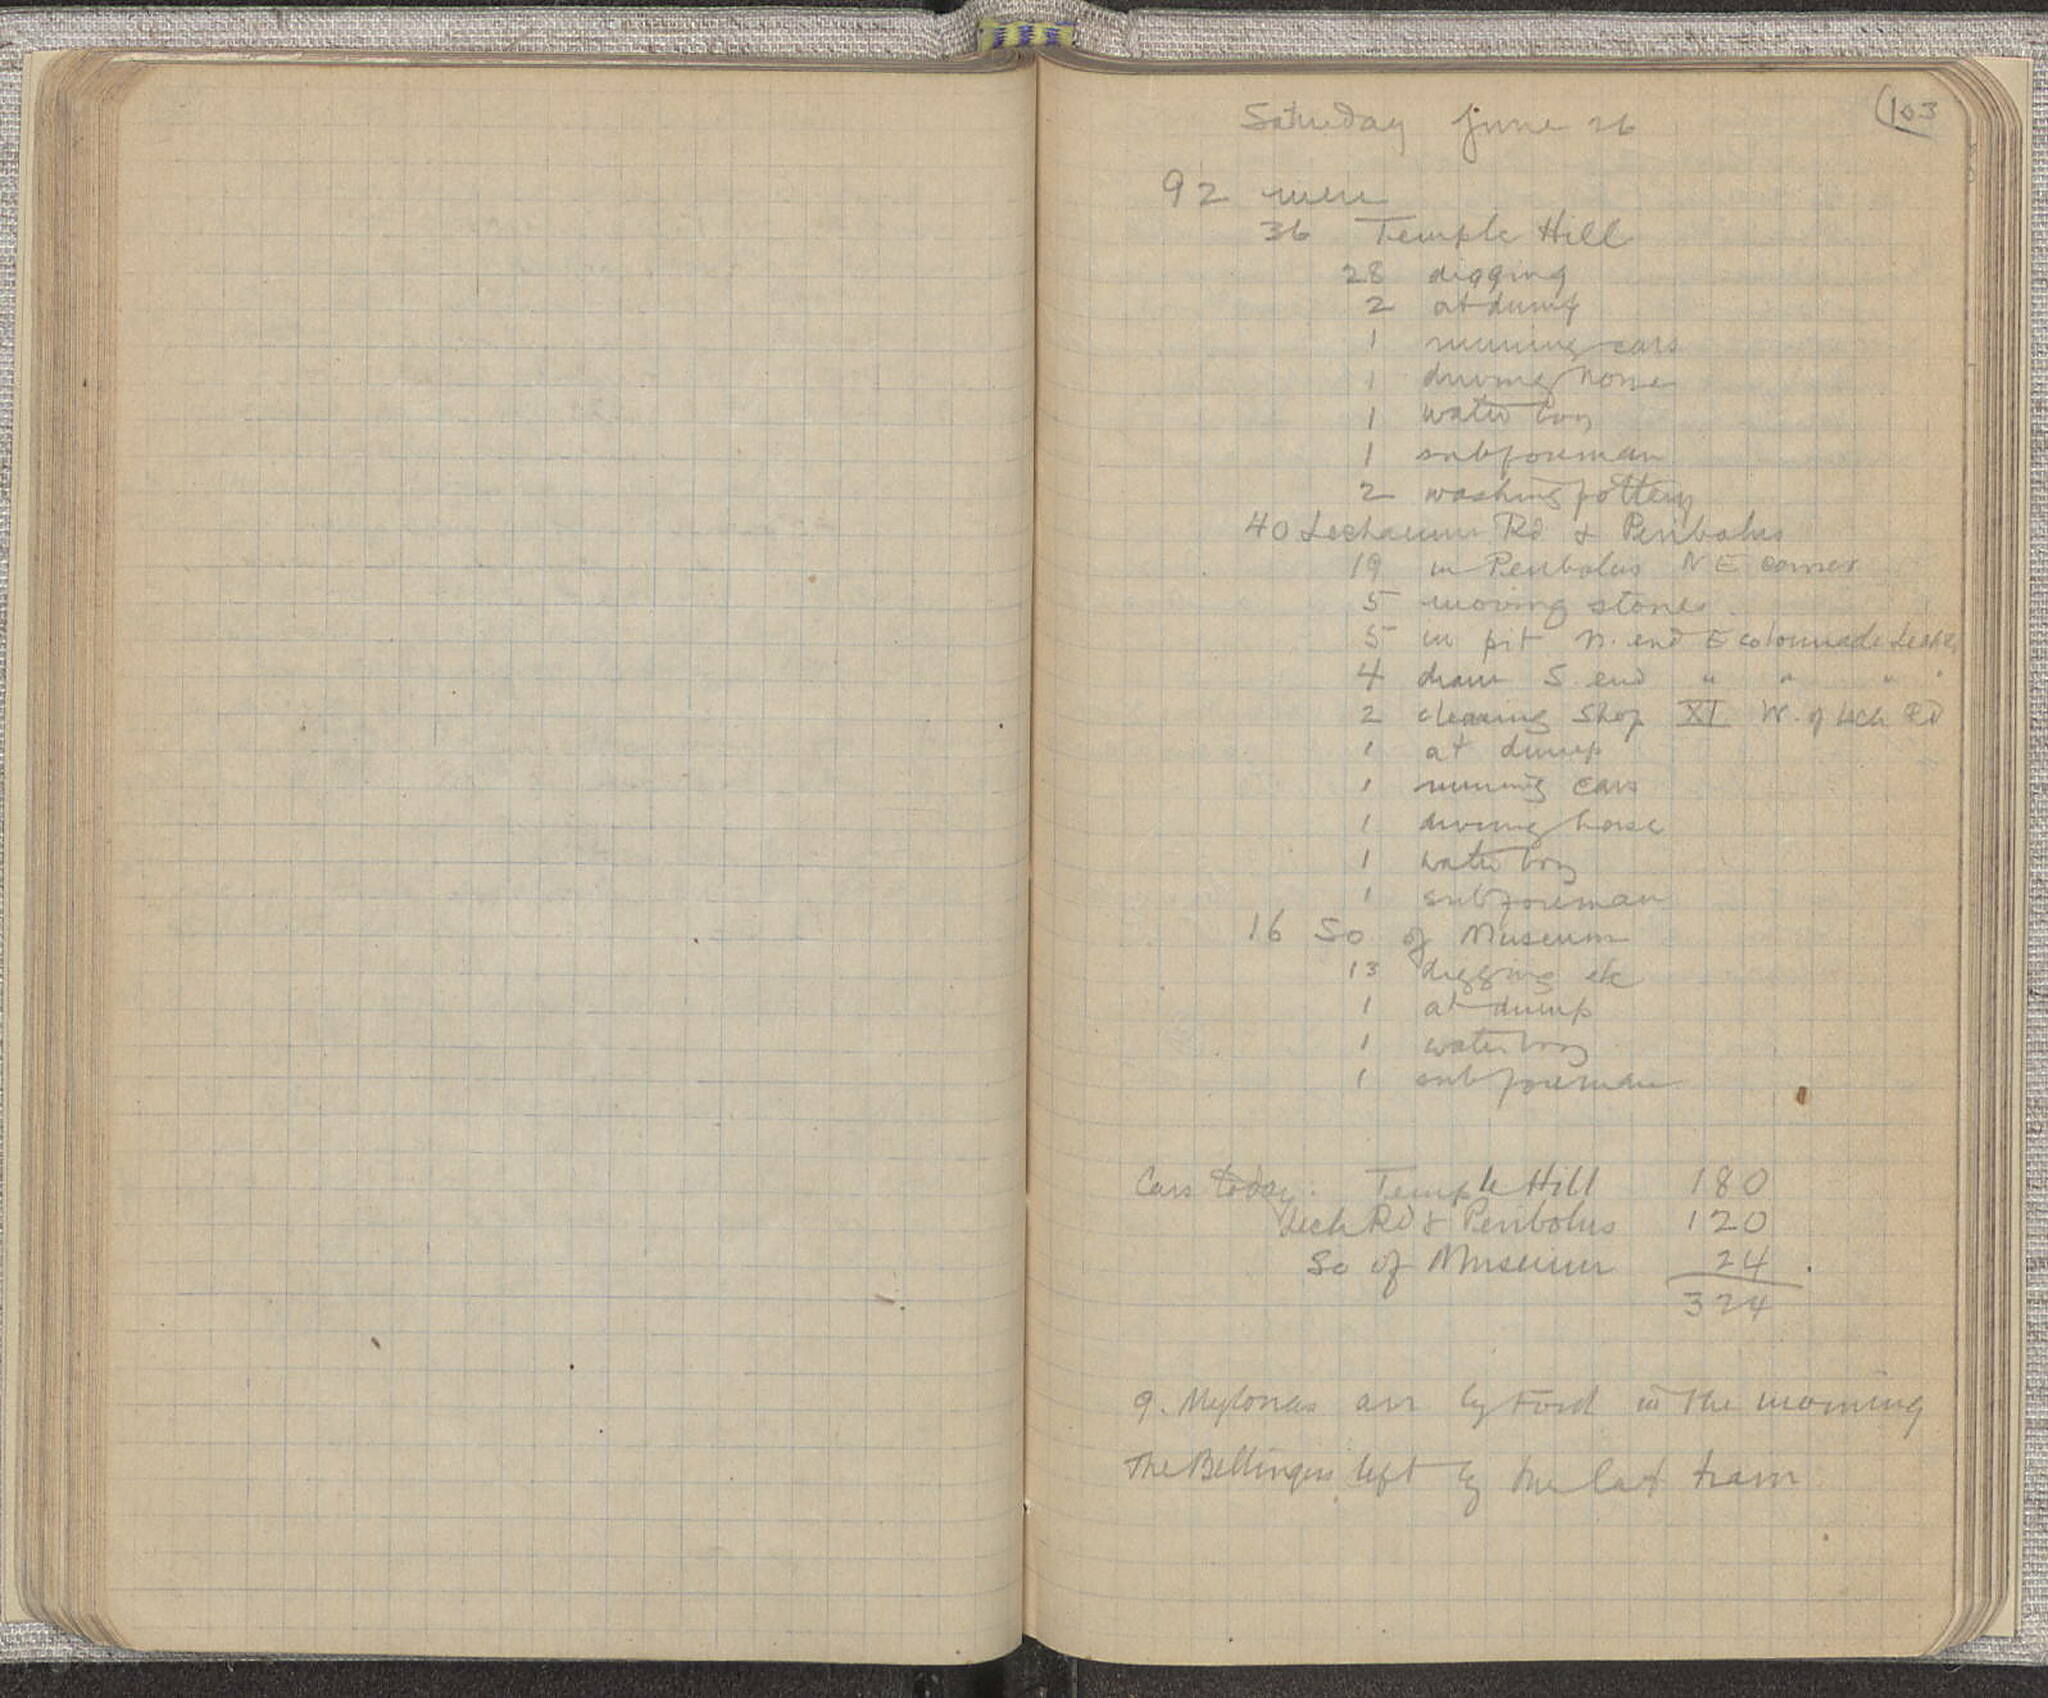 103
Saturday June 26
92 men
36 Temple Hill
28 digging
2 at dump
1 running cars
1 driving horse
1 water boy
1 subforeman
2 washing pottery
40 Lechaeum Rd & Peribolus
19 in Peribolus N E corner
5 moving stones.
5 in pit N. end E colonnade
4 drain S. end " " " "
2 cleaning Shop XI W. of Lech Rd
1 at dump
1 running cars
1 driving horse
1 water boy
1 subforeman
16 So of Museum
13 digging etc
1 at dump
1 water boy
1 subforeman
Cars today. Temple Hill 180
Lech Rd & Peribolus 120
So of Museum 24.
324
9. Mylonas arr by Ford in the morning
The Bellingers left by the last train